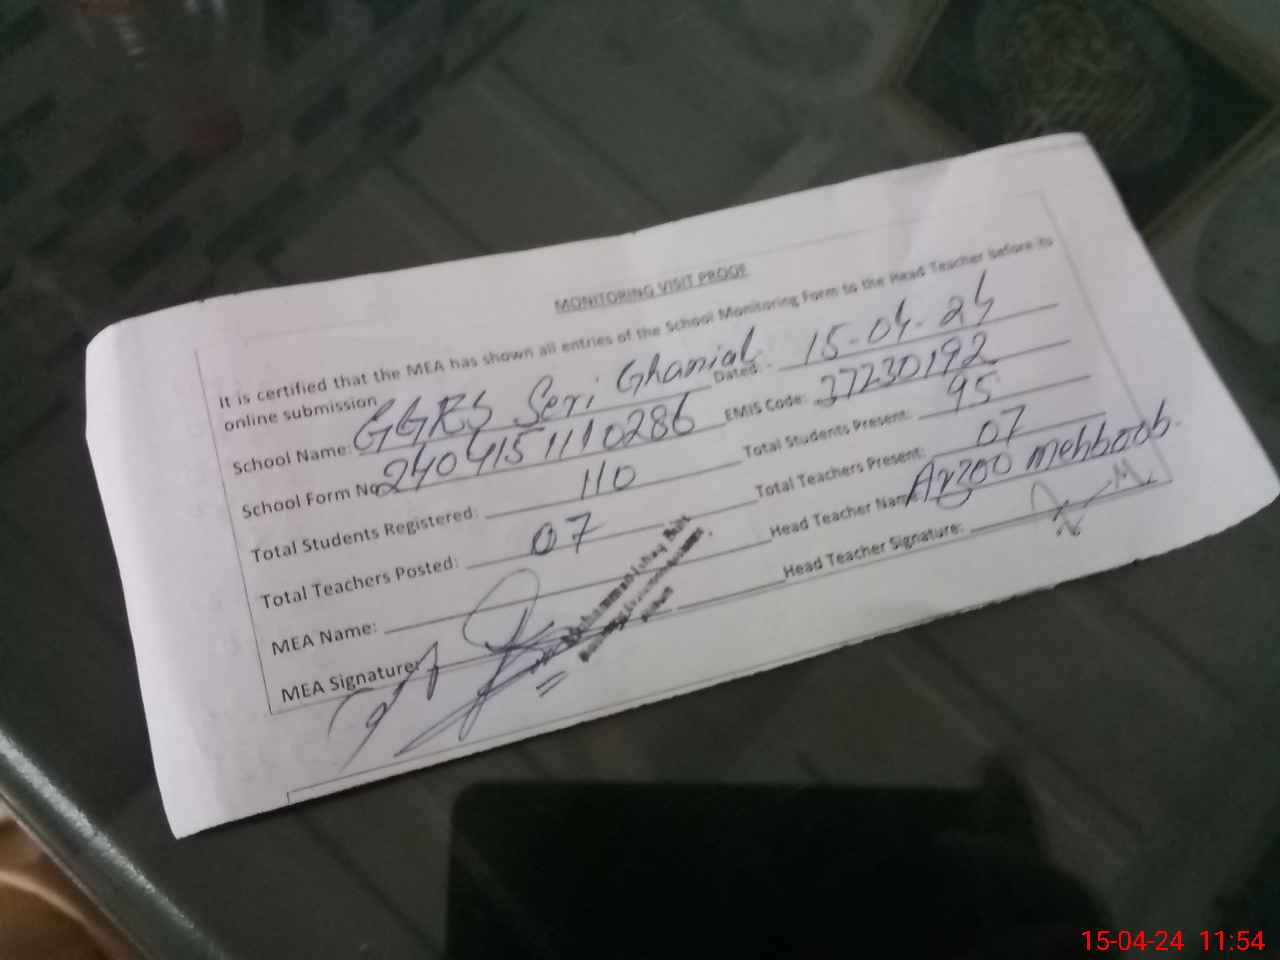 MONITORING VISIT PROOF
It is certified that the MEA has shown all entries of the School Monitoring Form to the Head Teacher before its
online submission
School Name: GGES Seri Ghanial Dated: 15-04-24
School Form No 2404151110286 EMIS Code: 37230192
Total Students Registered: 110 Total Students Present: 95
Total Teachers Posted: 07 Total Teachers Present: 07
MEA Name: Head Teacher Name Arzoo mehboob.
MEA Signature: Head Teacher Signature:
15-04-24 11:54